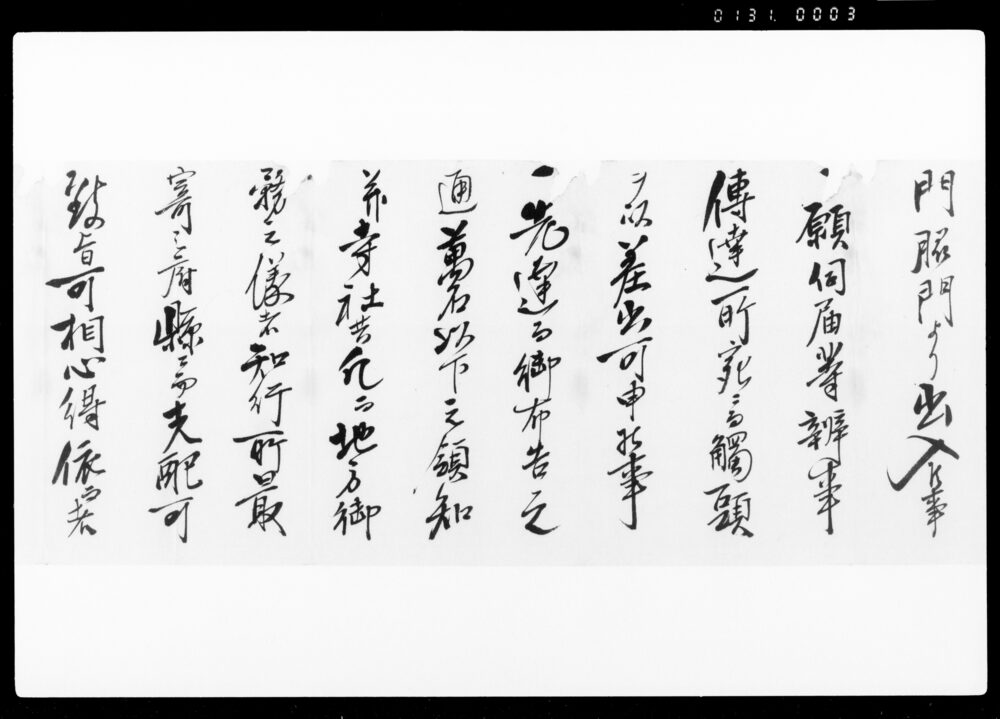 0131. 0003
門脇門より出入之事
一願伺届等辨事
傳達所宛ニ而觸頭
ヲ以差出可申候事
一先達而御布告之
通萬石以下之領知
并寺社共凡而地方御
觸之儀者知行所最
寄之府縣ニ而支配可
致旨可相心得依而者